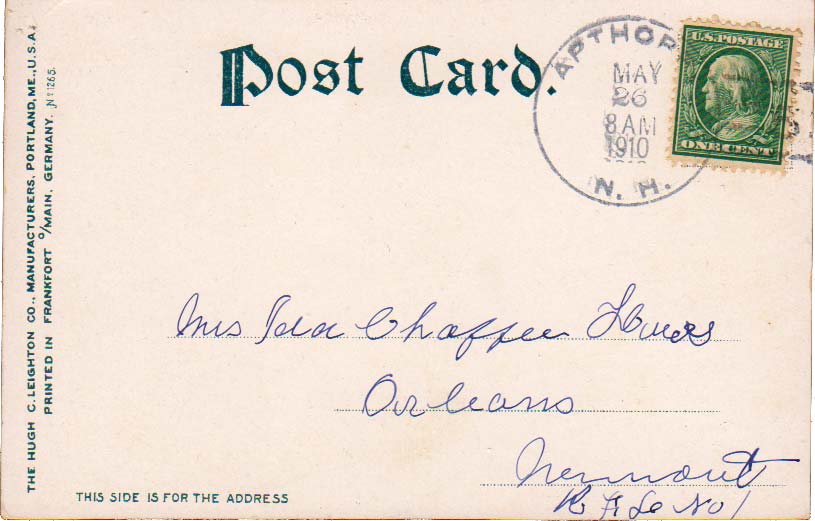 Post Card.
APTHOR
MAY
26
8 AM
1910
N. H.
U.S. POSTAGE
ONE CENT
THE HUGH C. LEIGHTON CO., MANUFACTURERS, PORTLAND, ME., U.S.A.
PRINTED IN FRANKFORT O/MAIN, GERMANY. No 1265.
Mrs Ida Chaffee
Orleans
Vermont
R F D No 1
THIS SIDE IS FOR THE ADDRESS